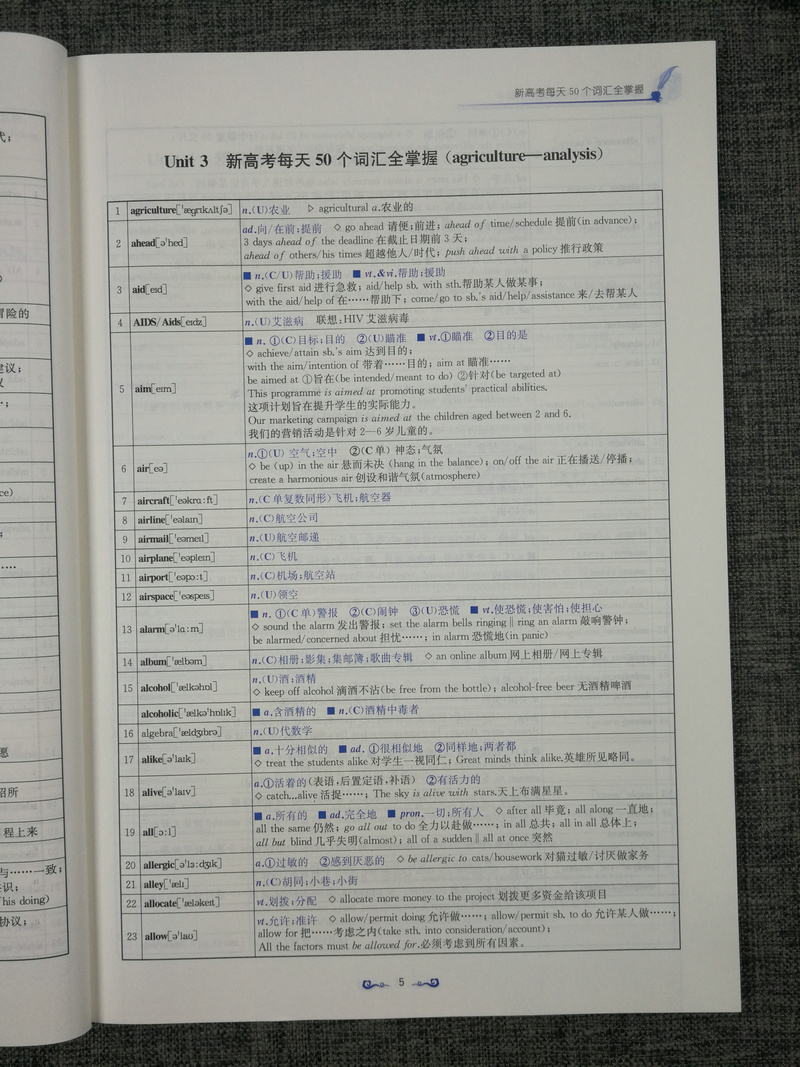 代；
冒险的
建议；
义
ce)
……
愿
诏所
程上来
与……一致；
识；
his doing)
协议；
新高考每天 50 个词汇全掌握
Unit 3 新高考每天 50 个词汇全掌握 (agriculture—analysis)
1 agriculture[ˈægrɪkʌltʃə] n.(U)农业 ▷ agricultural a.农业的
2 ahead[əˈhed] ad.向/在前；提前 ◇ go ahead 请便；前进；ahead of time/schedule 提前(in advance)；
3 days ahead of the deadline 在截止日期前 3 天；
ahead of others/his times 超越他人/时代；push ahead with a policy 推行政策
3 aid[eɪd] ■ n.(C/U)帮助；援助 ■ vt.&vi.帮助；援助
◇ give first aid 进行急救；aid/help sb. with sth.帮助某人做某事；
with the aid/help of 在……帮助下；come/go to sb.'s aid/help/assistance 来/去帮某人
4 AIDS/Aids[eɪdz] n.(U)艾滋病 联想：HIV 艾滋病毒
5 aim[eɪm] ■ n. ①(C)目标；目的 ②(U)瞄准 ■ vt.①瞄准 ②目的是
◇ achieve/attain sb.'s aim 达到目的；
with the aim/intention of 带着……目的；aim at 瞄准……
be aimed at ①旨在(be intended/meant to do) ②针对(be targeted at)
This programme is aimed at promoting students' practical abilities.
这项计划旨在提升学生的实际能力。
Our marketing campaign is aimed at the children aged between 2 and 6.
我们的营销活动是针对 2—6 岁儿童的。
6 air[eə] n.①(U) 空气；空中 ②(C 单) 神态；气氛
◇ be (up) in the air 悬而未决 (hang in the balance)；on/off the air 正在播送/停播；
create a harmonious air 创设和谐气氛(atmosphere)
7 aircraft[ˈeəkrɑːft] n.(C 单复数同形)飞机；航空器
8 airline[ˈeəlaɪn] n.(C)航空公司
9 airmail[ˈeəmeɪl] n.(U)航空邮递
10 airplane[ˈeəpleɪn] n.(C)飞机
11 airport[ˈeəpɔːt] n.(C)机场；航空站
12 airspace[ˈeəspeɪs] n.(U)领空
13 alarm[əˈlɑːm] ■ n. ①(C 单)警报 ②(C)闹钟 ③(U)恐慌 ■ vt.使恐慌；使害怕；使担心
◇ sound the alarm 发出警报；set the alarm bells ringing‖ring an alarm 敲响警钟；
be alarmed/concerned about 担忧……；in alarm 恐慌地(in panic)
14 album[ˈælbəm] n.(C)相册；影集；集邮簿；歌曲专辑 ◇ an online album 网上相册/网上专辑
15 alcohol[ˈælkəhɒl] n.(U)酒；酒精
◇ keep off alcohol 滴酒不沾(be free from the bottle)；alcohol-free beer 无酒精啤酒
alcoholic[ˌælkəˈhɒlɪk] ■ a.含酒精的 ■ n.(C)酒精中毒者
16 algebra[ˈældʒɪbrə] n.(U)代数学
17 alike[əˈlaɪk] ■ a.十分相似的 ■ ad. ①很相似地 ②同样地；两者都
◇ treat the students alike 对学生一视同仁；Great minds think alike.英雄所见略同。
18 alive[əˈlaɪv] a.①活着的(表语，后置定语，补语) ②有活力的
◇ catch...alive 活捉……；The sky is alive with stars.天上布满星星。
19 all[ɔːl] ■ a.所有的 ■ ad.完全地 ■ pron.一切；所有人 ◇ after all 毕竟；all along 一直地；
all the same 仍然；go all out to do 全力以赴做……；in all 总共；all in all 总体上；
all but blind 几乎失明(almost)；all of a sudden‖all at once 突然
20 allergic[əˈlɜːdʒɪk] a.①过敏的 ②感到厌恶的 ◇ be allergic to cats/housework 对猫过敏/讨厌做家务
21 alley[ˈælɪ] n.(C)胡同；小巷；小街
22 allocate[ˈæləkeɪt] vt.划拨；分配 ◇ allocate more money to the project 划拨更多资金给该项目
23 allow[əˈlaʊ] vt.允许；准许 ◇ allow/permit doing 允许做……；allow/permit sb. to do 允许某人做……；
allow for 把……考虑之内(take sth. into consideration/account)；
All the factors must be allowed for.必须考虑到所有因素。
5